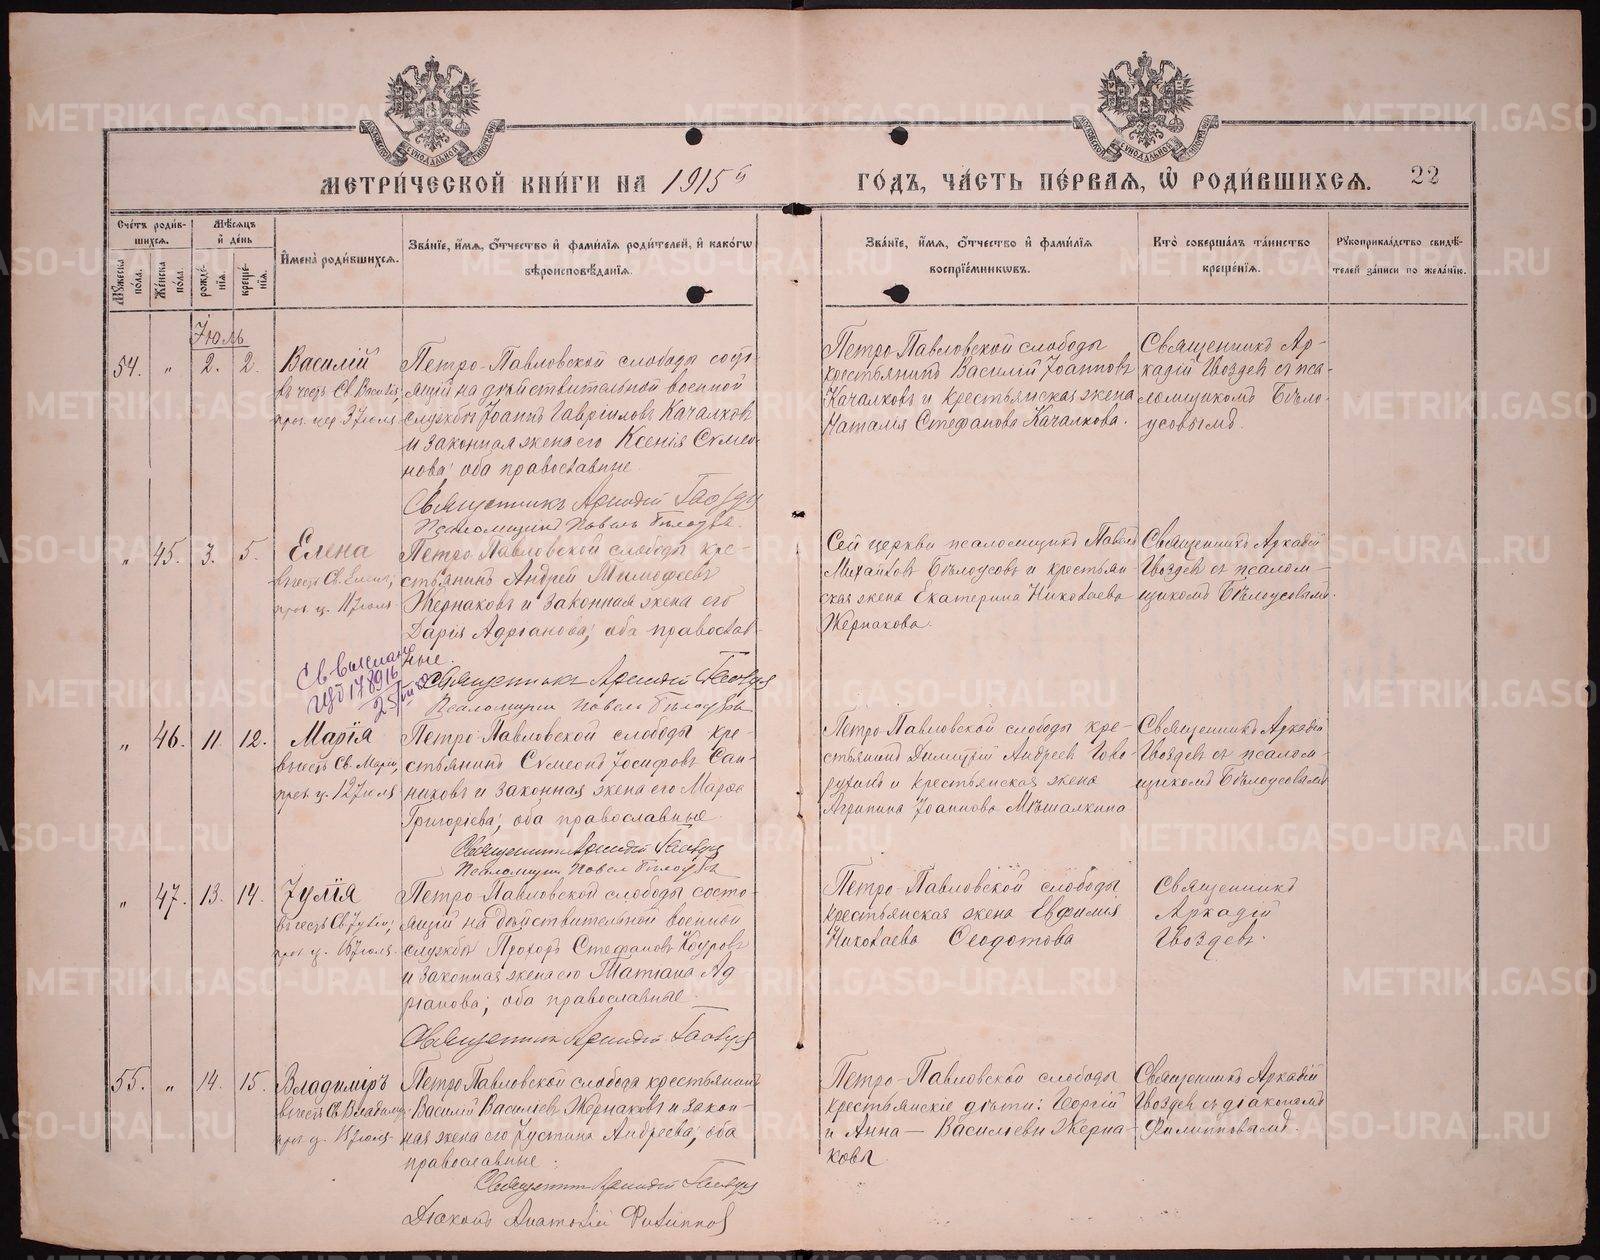 МЕТРИ́ЧЕСКОЙ КНИ́ГИ НА 1915й
ГО́ДЪ, ЧА́СТЬ ПЕ́РВАЯ, Ѡ҆ РОДИ́ВШИХСЯ. 22
Сче́тъ роди́в-
шихся.
Му́жеска по́ла.
Же́нска по́ла.
Мѣ́сяцъ
и҆ де́нь
рожде-
нїя.
креще-
нїя.
И҆мена̀ роди́вшихся.
Зва́нїе, и҆́мя, ѻ҆́тчество и҆ фами́лїя роди́телей, и҆ како́гѡ
вѣроисповѣ́данїя.
Зва́нїе, и҆́мя, ѻ҆́тчество и҆ фами́лїя
воспрїе́мникѡвъ.
Кто̀ соверша́лъ та́инство
креще́нїя.
Рꙋкоприкла́дство свидѣ́-
телей за́писи по жела́нїю.
Іюль
54. „ 2. 2.
Василій
въ честь Св. Василія,
пр. цер. 3 Іюля
Петро-Павловской слободы состо-
ящій на дѣйствительной военной
службѣ Іоаннъ Гавриловъ Качалковъ
и законная жена его Ксенія Сѵмео-
нова; оба православные.
Священникъ Аркадій Гвоздев
Псаломщикъ Павелъ Бѣлоусовъ
Петро-Павловской слободы
крестьянинъ Василій Іоанновъ
Качалковъ и крестьянская жена
Наталія Стефанова Качалкова.
Священникъ Ар-
кадій Гвоздевъ съ пса-
ломщикомъ Бѣло-
усовымъ.
„ 45. 3. 5.
Елена
въ честь Св. Елены,
пр. ц. 11 Іюля
Петро-Павловской слободы кре-
стьянинъ Андрей Тимофеевъ
Жернаковъ и законная жена его
Дарія Адріанова; оба православ-
ные.
Священникъ Аркадій Гвоздев
Псаломщикъ Павелъ Бѣлоусовъ
Сей церкви псаломщикъ Павелъ
Михайловъ Бѣлоусовъ и крестьян-
ская жена Екатерина Николаева
Жернакова.
Священникъ Аркадій
Гвоздевъ съ псалом-
щикомъ Бѣлоусовымъ.
178916
„ 46. 11. 12.
Марія
въ честь Св. Маріи,
пр. ц. 12 Іюля
Петро-Павловской слободы кре-
стьянинъ Сѵмеонъ Іосифовъ Сан-
никовъ и законная жена его Марѳа
Григорьева; оба православные.
Священникъ Аркадій Гвоздев
Псаломщикъ Павелъ Бѣлоусовъ
Петро-Павловской слободы кре-
стьянинъ Димитрій Андреевъ Гово-
рухинъ и крестьянская жена
Агрипина Іоаннова Мѣшалкина
Священникъ Аркадій
Гвоздевъ съ псалом-
щикомъ Бѣлоусовымъ
„ 47. 13. 14.
Іулія
въ честь Св. Іуліи,
пр. ц. Іюля
Петро-Павловской слободы состо-
ящій на дѣйствительной военной
службѣ Прохоръ Стефановъ
и законная жена его Татіана Ад-
ріанова; оба православные.
Священникъ Аркадій Гвоздев
Петро-Павловской слободы
крестьянская жена Евфимія
Николаева Ѳеодотова
Священникъ
Аркадій
Гвоздевъ.
55. „ 14. 15.
Владиміръ
въ честь Св. Владиміра,
пр. ц. 15 Іюля
Петро-Павловской слободы крестьянинъ
Василій Васильевъ Жернаковъ и закон-
ная жена его Іустина Андреева; оба
православные.
Священникъ Аркадій Гвоздев
Діаконъ Анатолій Филиппов
Петро-Павловской слободы
крестьянскіе дѣти: Георгій
и Анна — Васильевы Жерна-
ковы.
Священникъ Аркадій
Гвоздевъ съ діакономъ
Филипповымъ.
METRIKI.GASO-URAL.RU